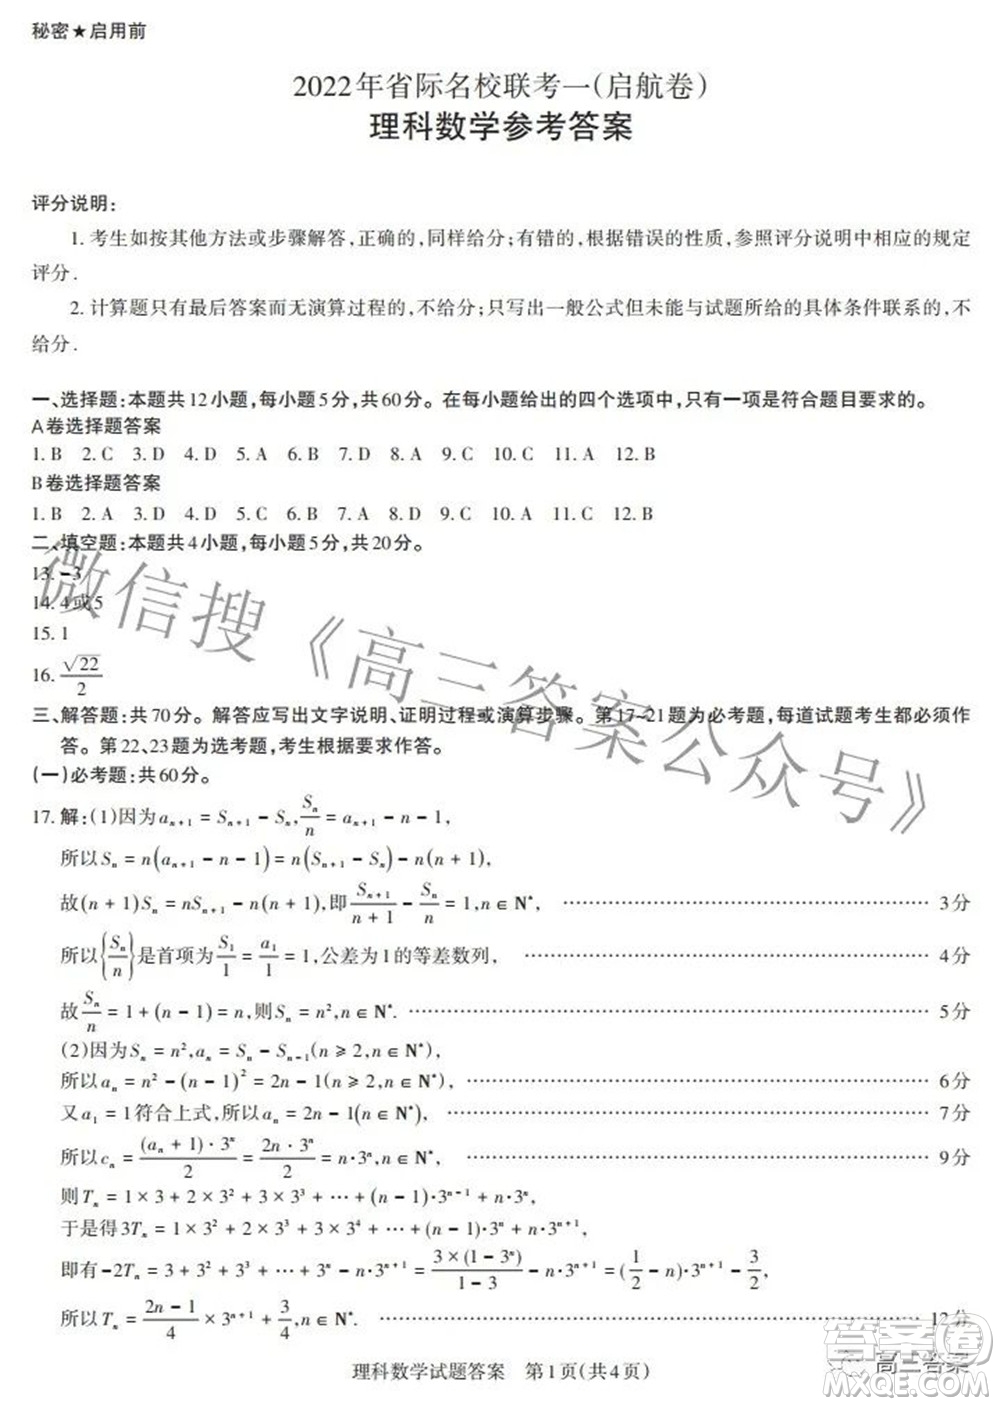 秘密★启用前
2022年省际名校联考一(启航卷)
理科数学参考答案
评分说明:
1. 考生如按其他方法或步骤解答,正确的,同样给分;有错的,根据错误的性质,参照评分说明中相应的规定
评分.
2. 计算题只有最后答案而无演算过程的,不给分;只写出一般公式但未能与试题所给的具体条件联系的,不
给分.
一、选择题:本题共12小题,每小题5分,共60分。在每小题给出的四个选项中,只有一项是符合题目要求的。
A卷选择题答案
1. B 2. C 3. D 4. D 5. A 6. B 7. D 8. A 9. C 10. C 11. A 12. B
B卷选择题答案
1. B 2. A 3. D 4. D 5. C 6. B 7. D 8. C 9. C 10. A 11. A 12. B
二、填空题:本题共4小题,每小题5分,共20分。
13. -3
14. 4或5
15. 1
16. √22/2
三、解答题:共70分。解答应写出文字说明、证明过程或演算步骤。第17~21题为必考题,每道试题考生都必须作
答。第22、23题为选考题,考生根据要求作答。
(一)必考题:共60分。
17. 解:(1)因为aₙ₊₁ = Sₙ₊₁ - Sₙ, Sₙ/n = aₙ₊₁ - n - 1,
所以Sₙ = n(aₙ₊₁ - n - 1) = n(Sₙ₊₁ - Sₙ) - n(n + 1),
故(n + 1)Sₙ = nSₙ₊₁ - n(n + 1),即Sₙ₊₁/(n + 1) - Sₙ/n = 1, n ∈ N*, …… 3分
所以{Sₙ/n}是首项为S₁/1 = a₁/1 = 1,公差为1的等差数列, …… 4分
故Sₙ/n = 1 + (n - 1) = n,则Sₙ = n², n ∈ N*. …… 5分
(2)因为Sₙ = n², aₙ = Sₙ - Sₙ₋₁(n ≥ 2, n ∈ N*),
所以aₙ = n² - (n - 1)² = 2n - 1(n ≥ 2, n ∈ N*), …… 6分
又a₁ = 1符合上式,所以aₙ = 2n - 1(n ∈ N*), …… 7分
所以cₙ = (aₙ + 1)·3ⁿ/2 = 2n·3ⁿ/2 = n·3ⁿ(n ∈ N*), …… 9分
则Tₙ = 1 × 3 + 2 × 3² + 3 × 3³ + … + (n - 1)·3ⁿ⁻¹ + n·3ⁿ,
于是得3Tₙ = 1 × 3² + 2 × 3³ + 3 × 3⁴ + … + (n - 1)·3ⁿ + n·3ⁿ⁺¹,
即有-2Tₙ = 3 + 3² + 3³ + … + 3ⁿ - n·3ⁿ⁺¹ = 3 × (1 - 3ⁿ)/(1 - 3) - n·3ⁿ⁺¹ = (1/2 - n)·3ⁿ⁺¹ - 3/2,
所以Tₙ = (2n - 1)/4 × 3ⁿ⁺¹ + 3/4, n ∈ N*. …… 12分
理科数学试题答案 第1页(共4页)
微信搜《高三答案公众号》
高三答案
答案圈
MXQE.COM